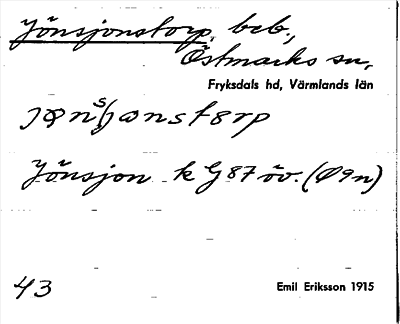 Jönsjonstorp, beb.,
Östmarks sn,
Fryksdals hd, Värmlands län
Jönsjon k G87 öv. (Ø9n)
43
Emil Eriksson 1915